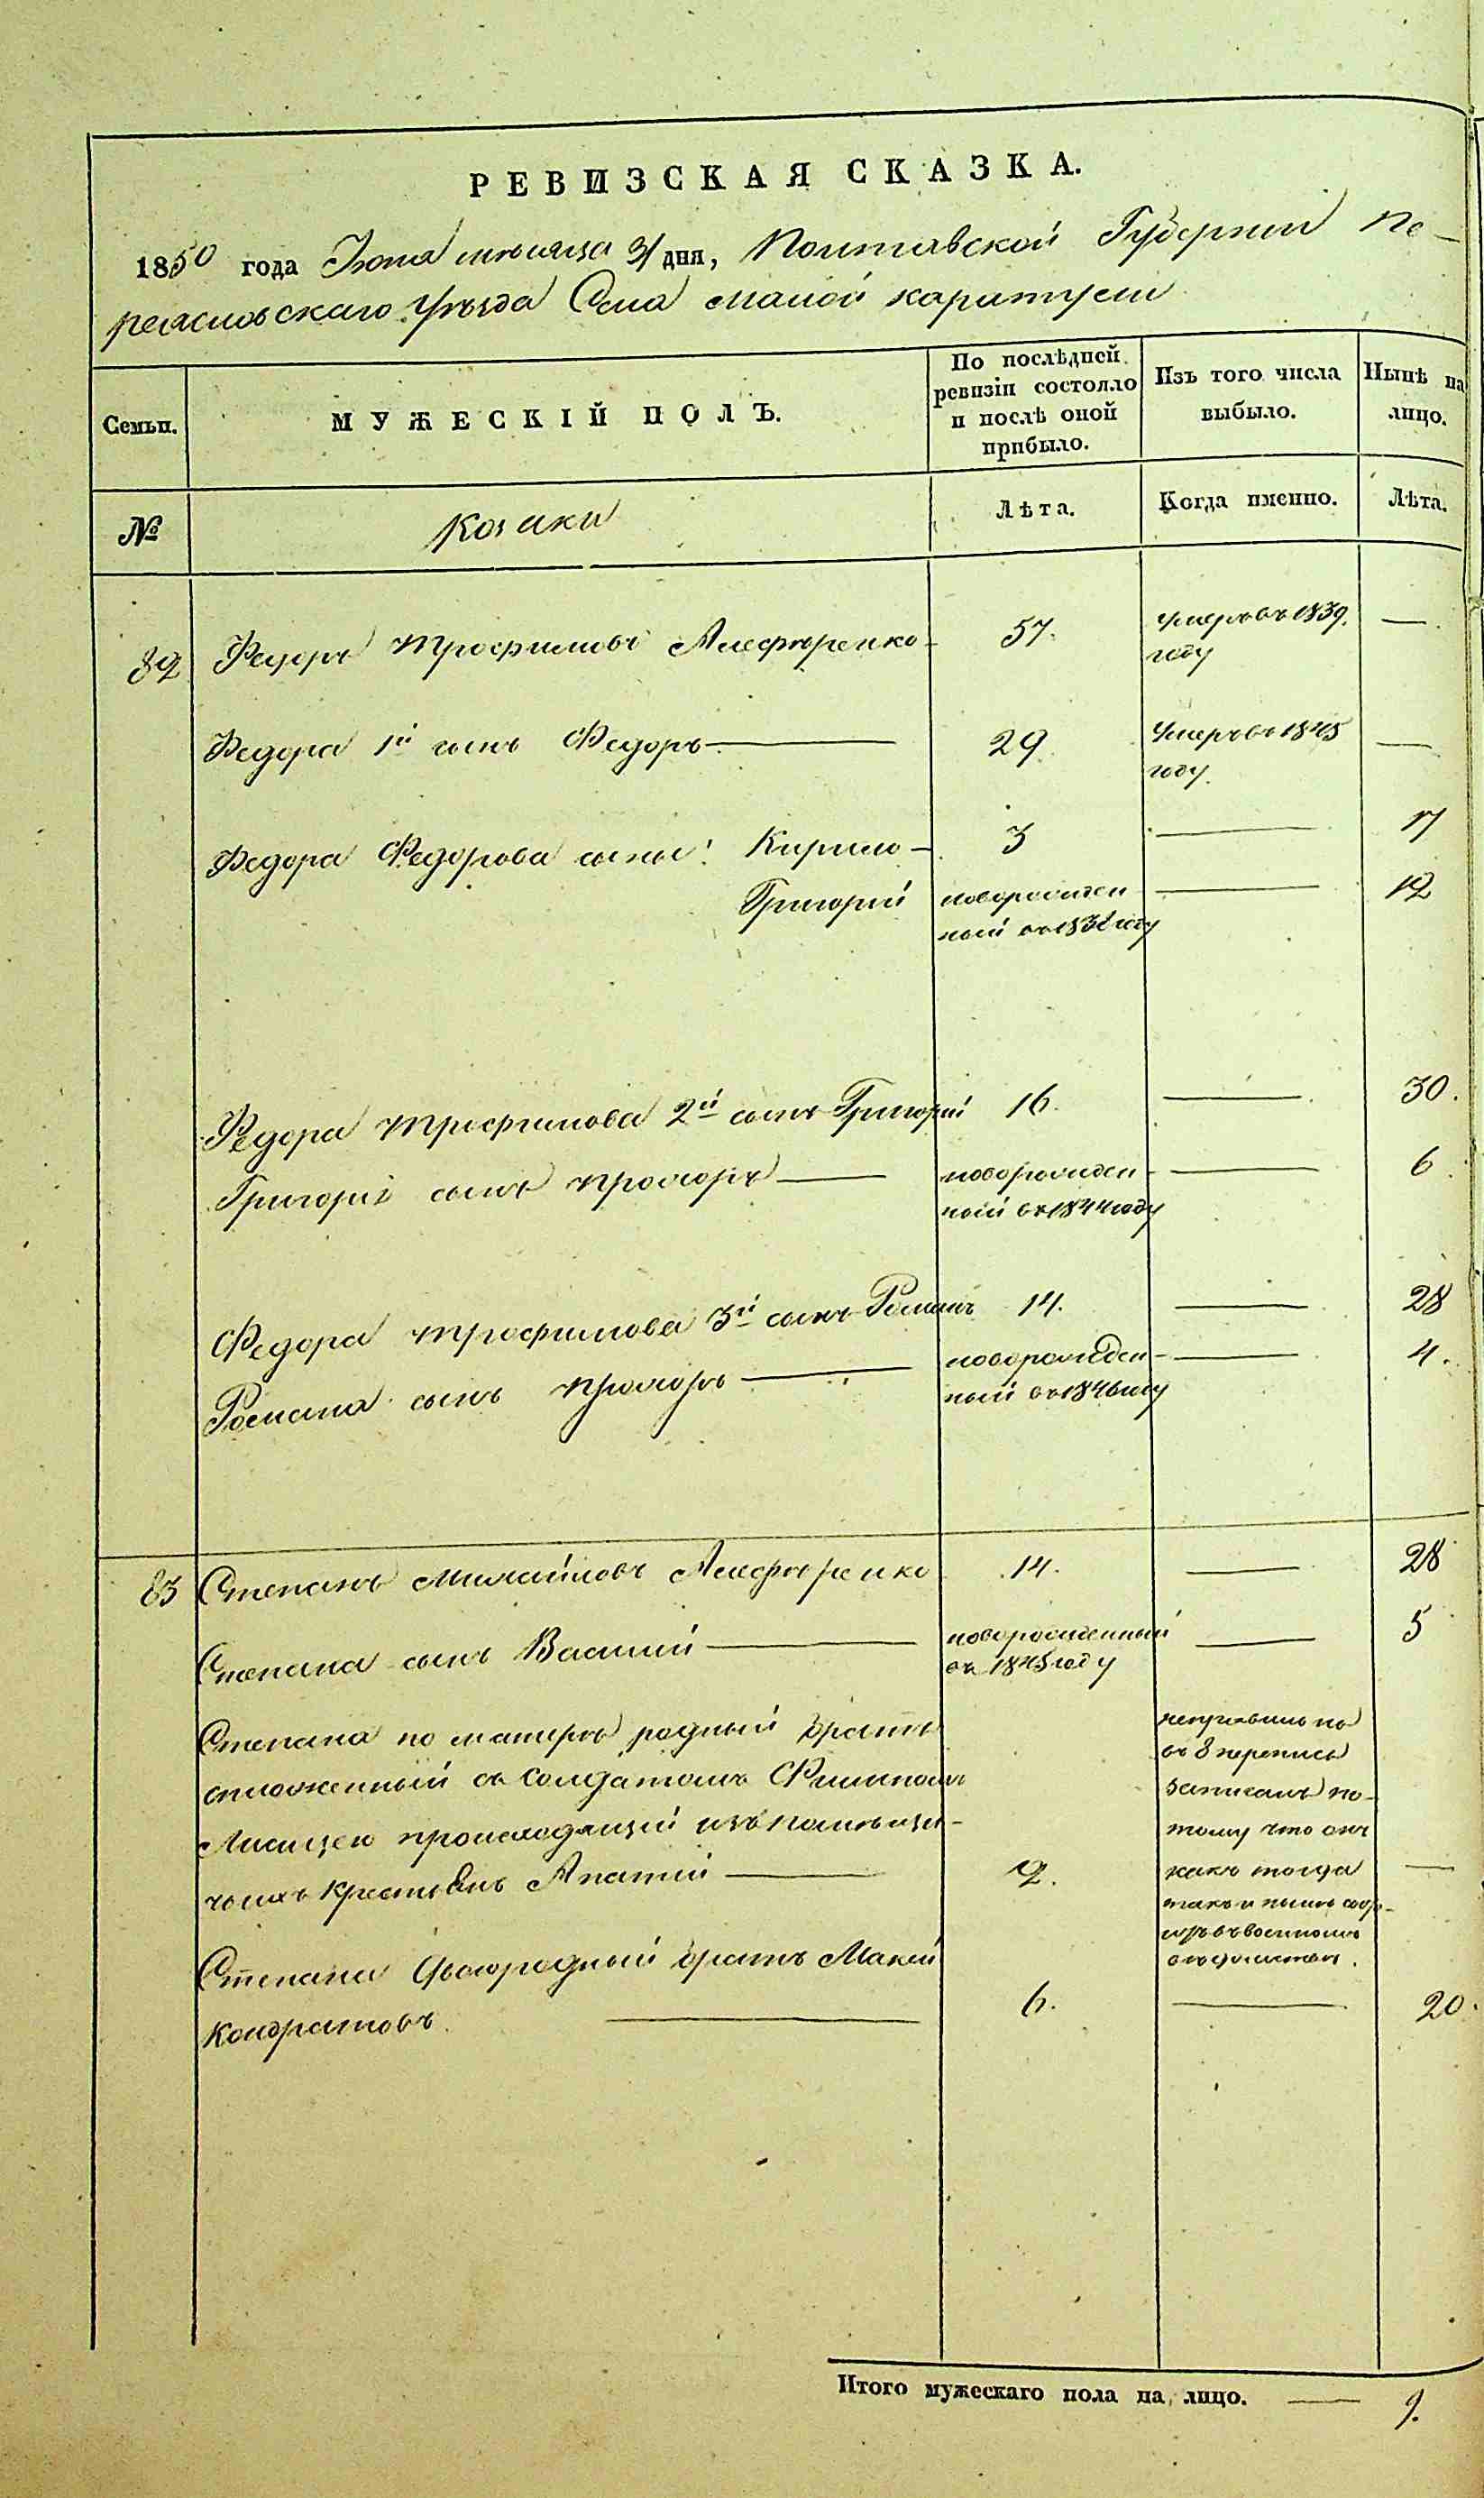 РЕВИЗСКАЯ СКАЗКА.
1850 года Июня месяца 3 дня, Полтавской Губернии Пе-
реяславскаго Уѣзда Села малой каратули
Семьи.
МУЖЕСКІЙ ПОЛЪ.
По послѣдней
ревизіи состояло
и послѣ оной
прибыло.
Изъ того числа
выбыло.
Нынѣ на
лицо.
№
Козаки
Лѣта.
Когда именно.
Лѣта.
82 Федоръ Трофимовъ Алефѣренко 57. Умеръ въ 1839. —
году
Федора 1й сынъ Федоръ — 29 Умеръ въ 1845 —
году.
Федора Федорова сыны: Кирило — 3 — 17
Григорий новорожден — 12
ный въ 1838 году
Федора Трофимова 2й сынъ Григорий 16. — 30.
Григорія сынъ Прохоръ — новорожден — 6
ный въ 1844 году
Федора Трофимова 3й сынъ Романъ 14. — 28
Романа сынъ Прохоръ — новорожден — 4.
ный въ 1846 году
83 Степанъ Михайловъ Алефѣренко 14. — 28
Степана сынъ Василий — новорожденный — 5
въ 1845 году
Степана по матерѣ родный братъ
неправильно
въ 8 перепись
прижженный съ солдатомъ Филипомъ
записанъ по-
Лисицею происходящій изъ помѣщи-
тому что онъ
чьихъ крестьянъ Апатій — 2. какъ тогда —
такъ и нынѣ сос-
въ военномъ
вѣдомствѣ.
Степана двоюродный братъ Макей
Кондратовъ. — 6. — 20.
Итого мужескаго пола на лицо. — 9.